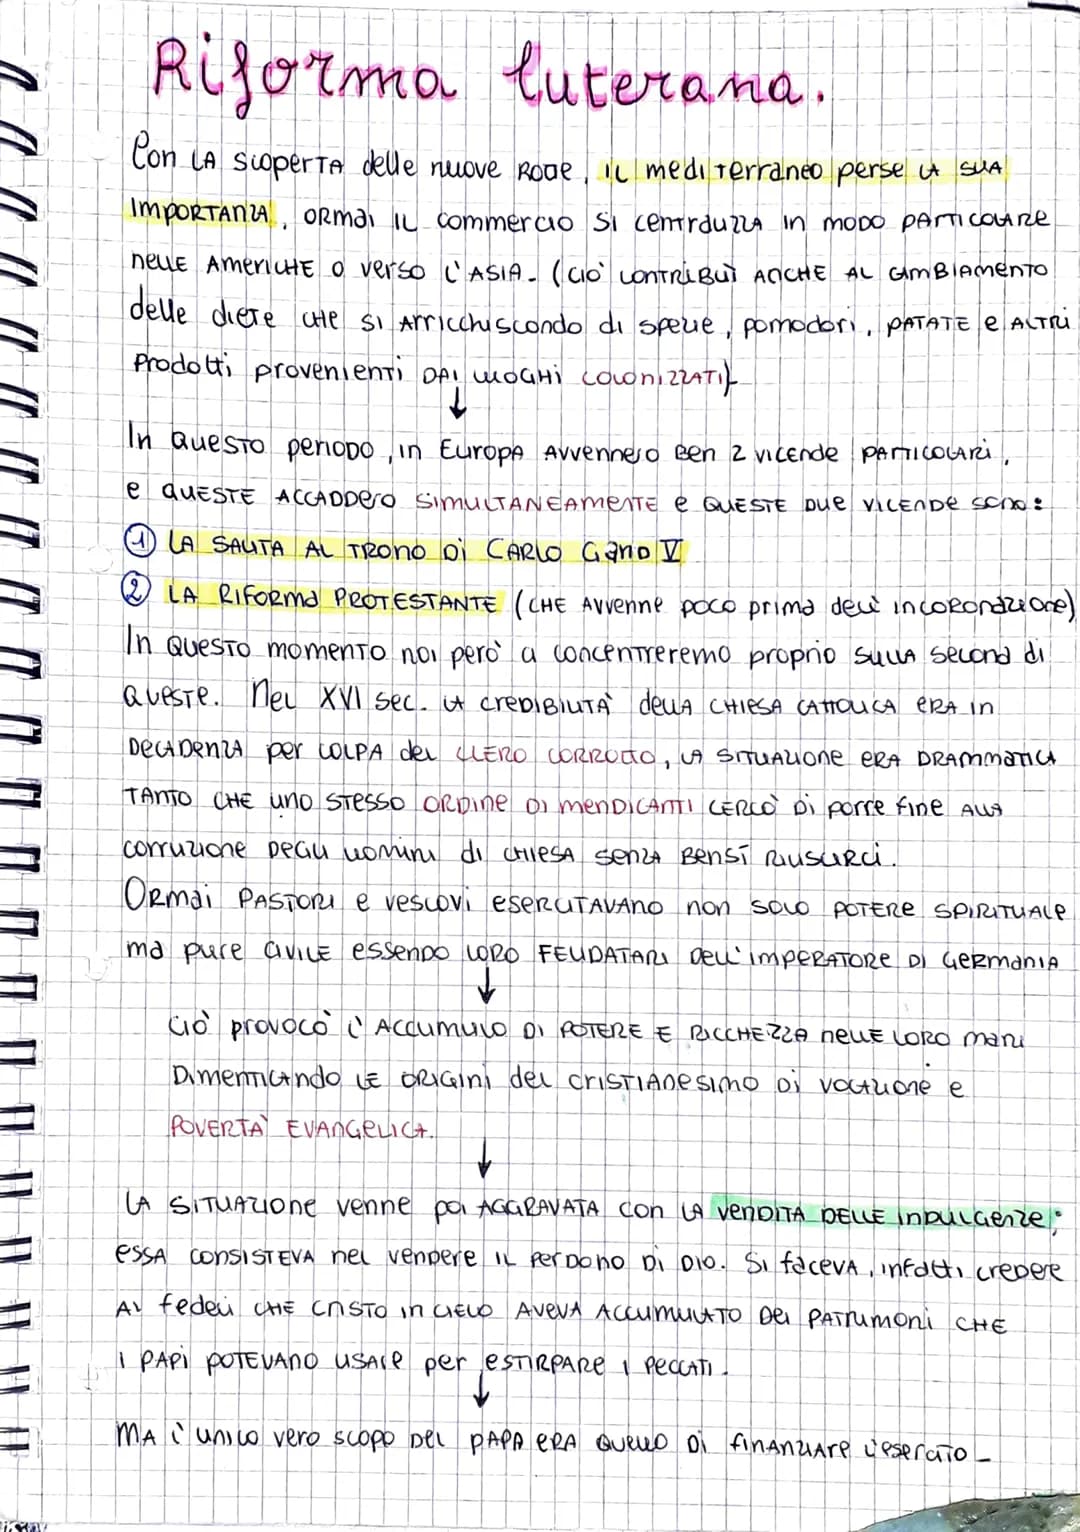 Riforma luterana.
Con LA scoperta delle nuove ROTTE, IL mediterraneo perse LA SUA
IMPORTANZA, ORMAI IL commercio si centralizza in modo PARTICOLARE
nelle AMERICHE o verso L'ASIA. (CIÒ contribuì ANCHE AL CAMBIAMENTO
delle diete CHE SI ARRICChiscondo di spezie, pomodori, PATATE e ALTRI
Prodotti provenienti DAI LUOGHI COLONIZZATI)
↓
In QUESTO PERIODO, in EUROPA AVVENNERO BEN 2 VICENDE PARTICOLARI,
e QUESTE ACCADDERO SIMULTANEAMENTE e QUESTE DUE VICENDE sono:
① LA SALITA AL TRONO DI CARLO V
② LA RIFORMA PROTESTANTE (CHE AVVENNE poco prima dell'incoronazione)
In QUESTO momento noi però ci concentreremo proprio SULLA second di
QUESTE. Nel XVI sec. LA CREDIBILITÀ della CHIESA CATTOLICA ERA in
DECADENZA per COLPA del CLERO CORROTTO, LA SITUAZIONE ERA DRAMMATICA
TANTO CHE uno STESSO ORDINE DI MENDICANTI CERCÒ DI porre fine ALLA
corruzione DEGLI uomini di CHIESA senza BENSÌ RIUSCIRCI.
ORMAI PASTORI e vescovi ESERCITAVANO non SOLO POTERE SPIRITUALE
ma pure CIVILE essendo LORO FEUDATARI Dell'IMPERATORE DI GERMANIA
↓
Ciò provocò l'ACCUMULO DI POTERE E RICCHEZZA nelle LORO mani
Dimenticando LE ORIGINI del CRISTIANESIMO DI VOCAZIONE e
POVERTÀ EVANGELICA.
↓
LA SITUAZIONE venne poi AGGRAVATA con LA VENDITA DELLE INDULGENZE;
ESSA CONSISTEVA nel vendere IL PERDONO DI DIO. Si faceva, infatti credere
AI fedeli CHE CRISTO in CIELO AVEVA ACCUMULATO DEI PATRIMONI CHE
I PAPI POTEVANO USARE per ESTIRPARE I PECCATI.
↓
MA L'unico vero scopo DEL PAPA ERA QUELLO DI FINANZIARE L'esercito